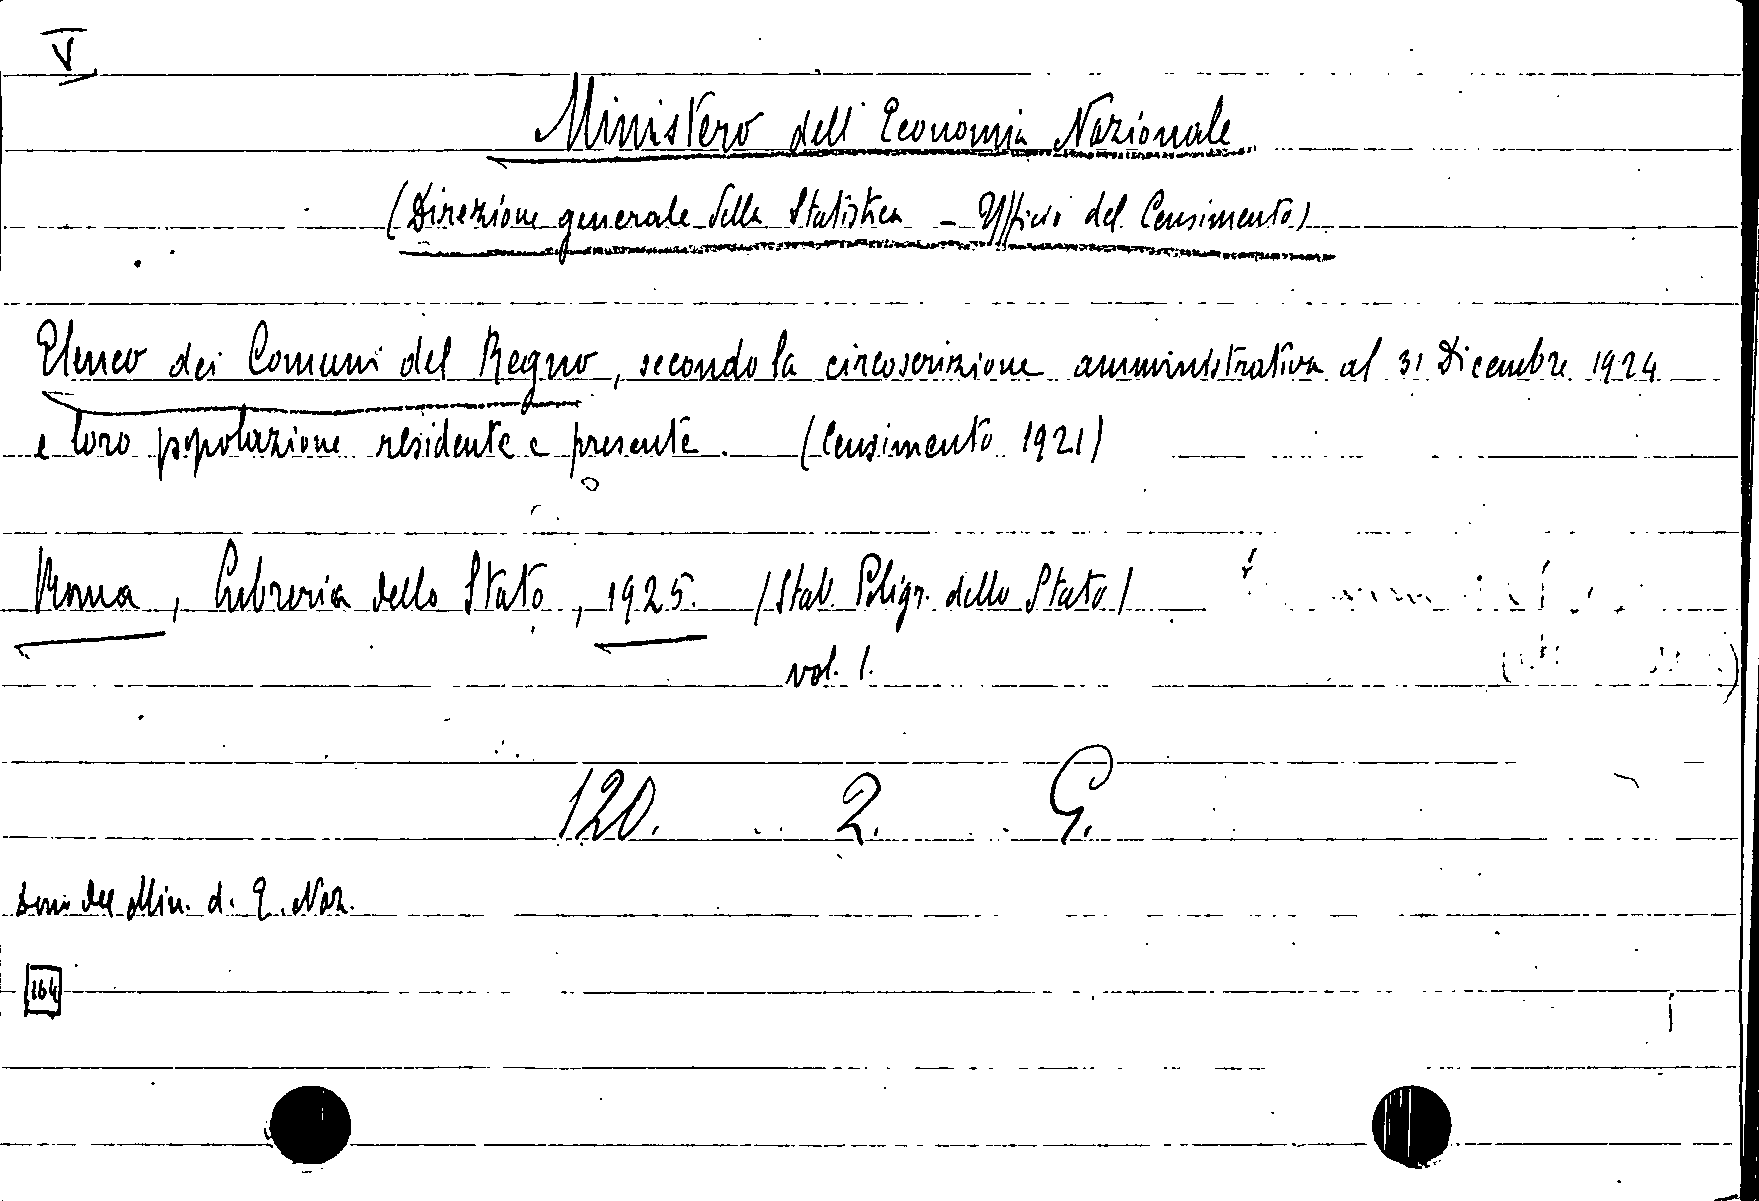 V
Ministero dell'Economia Nazionale
(Direzione generale della Statistica - Ufficio del Censimento)
Elenco dei Comuni del Regno, secondo la circoscrizione amministrativa al 31 Dicembre 1924
e loro popolazione residente e presente. (Censimento 1921)
Roma, Libreria dello Stato, 1925. (Stab. Poligr. dello Stato)
vol. 1.
120. 2. G.
del Min. d. E. Naz.
164